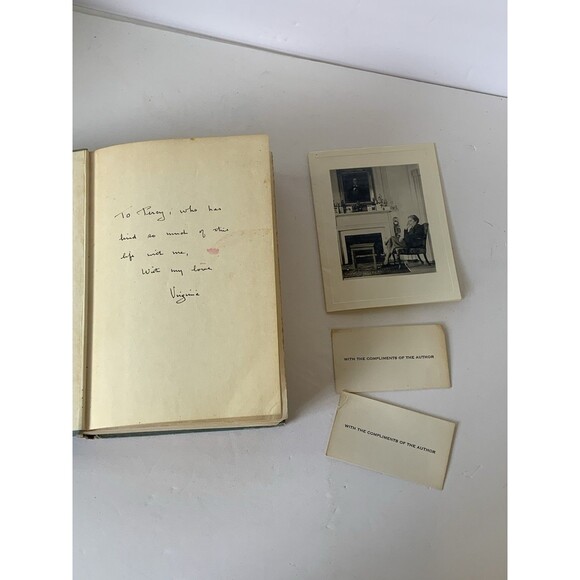 To Percy, who has
lived so much of this
life with me,
With my love
Virginia
WITH THE COMPLIMENTS OF THE AUTHOR
WITH THE COMPLIMENTS OF THE AUTHOR